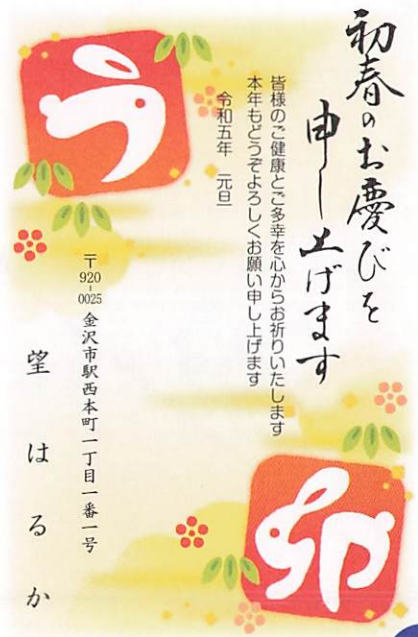 初春のお慶びを
申し上げます
皆様のご健康とご多幸を心からお祈りいたします
本年もどうぞよろしくお願い申し上げます
令和五年 元旦
〒920-0025 金沢市駅西本町一丁目一番一号
望 はるか
う
卯